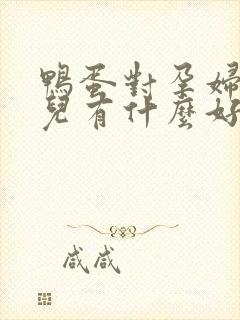 鴨蛋對孕婦
兒有什麼好
咸咸